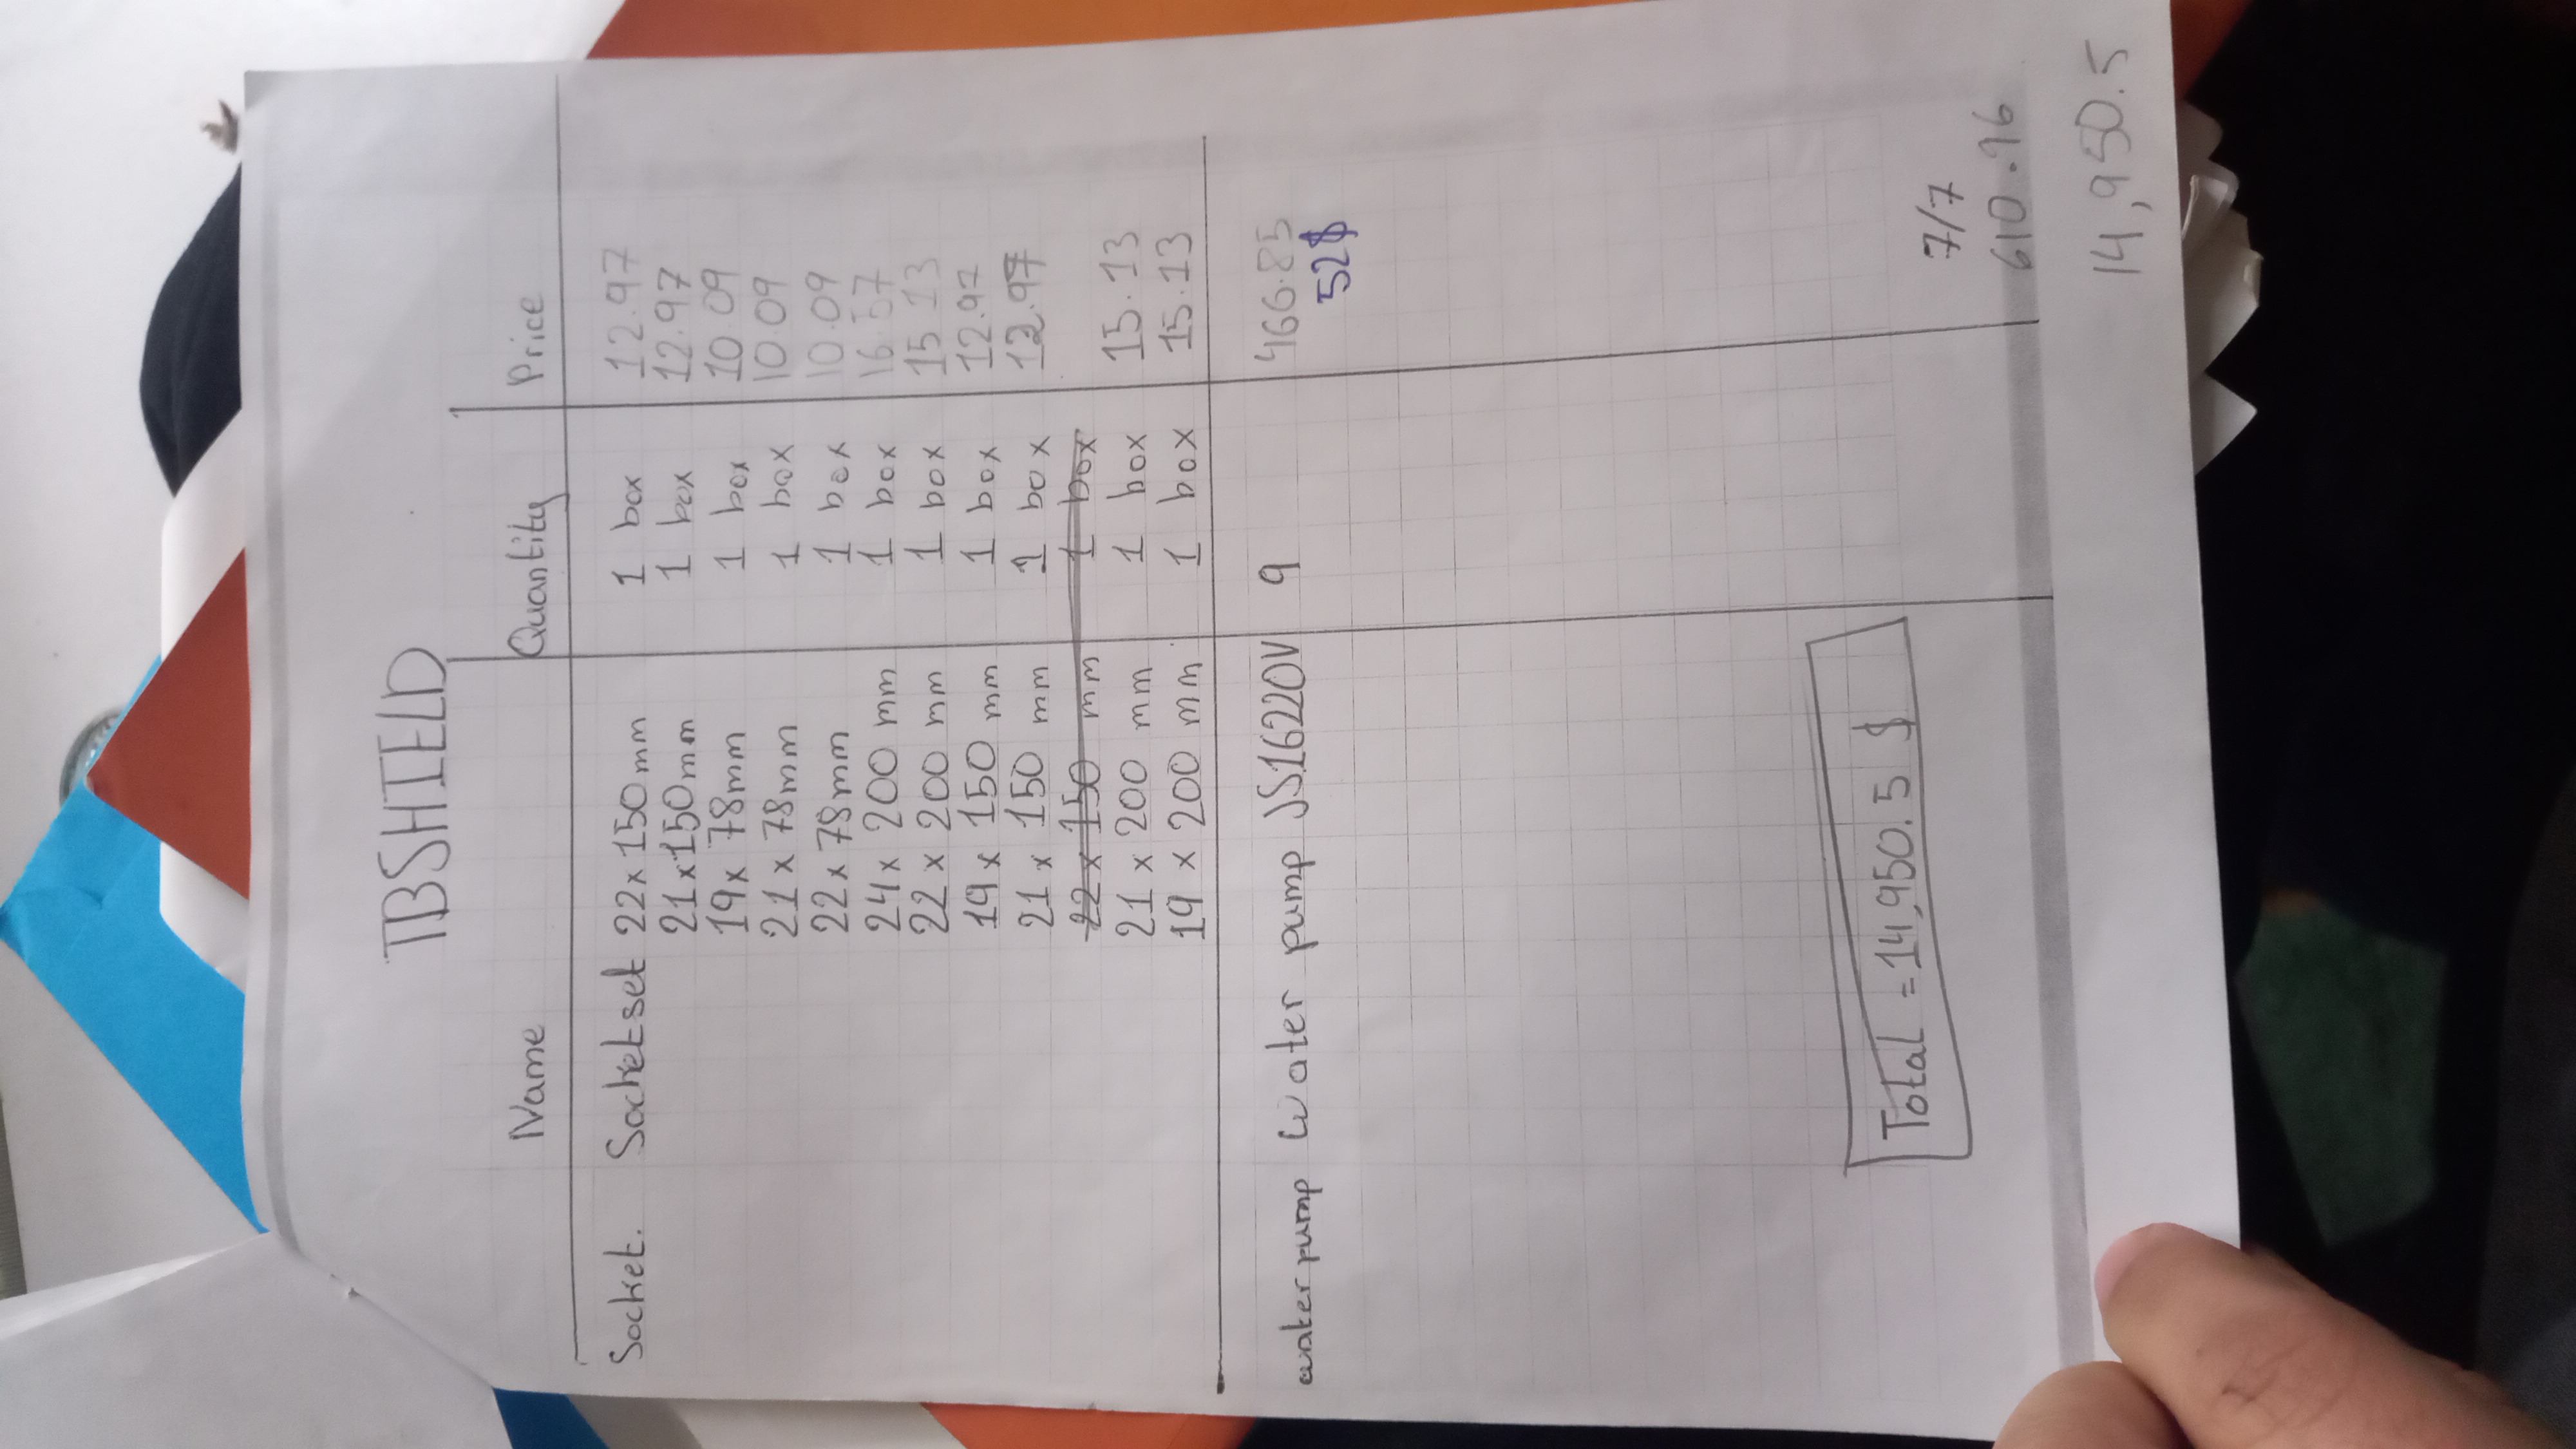 TBSHIELD
Name Quantity Price
Socket. Socketset 22x150mm 1 box 12.97
21x150mm 1 box 12.97
19x 78mm 1 box 10.09
21x78mm 1 box 10.09
22x78mm 1 box 10.09
24x 200 mm 1 box 16.57
22x 200 mm 1 box 15.13
19x 150 mm 1 box 12.97
21x 150 mm 1 box 12.97
22x 150 mm 1 box
21x 200 mm 1 box 15.13
19 x 200 mm 1 box 15.13
waterpump Water pump JS16220V 9 466.85
52$
Total = 14,950.5 $
7/7
610.16
14,950.5